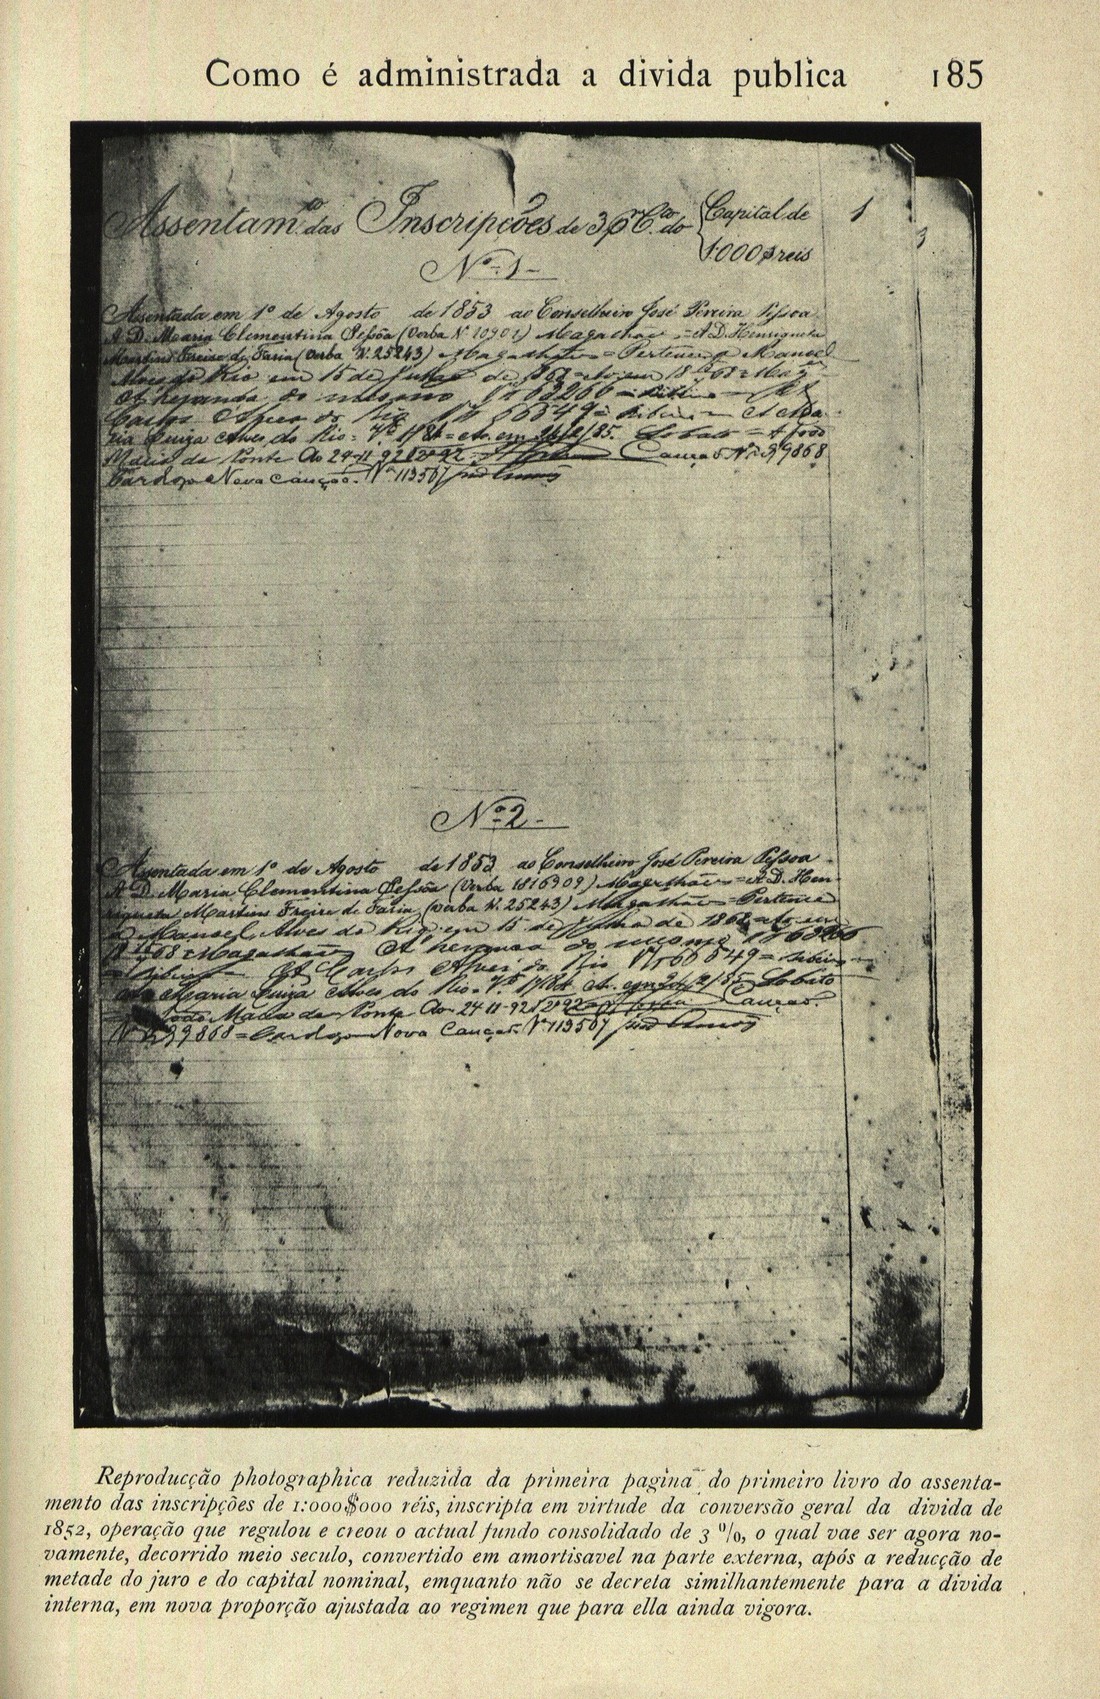 Como é administrada a divida publica 185
Assentam.to das Inscripções de 3 p.r C.to do Capital de 1
1:000$reis
3
Nº 1
Assentada em 1º de Agosto de 1853 ao Conselheiro José Pereira Pessoa
A D. Maria Clementina Pessôa (Verba Nº 10901) Magalhães = A D. Henriqueta
Martins Freire de Faria (Verba Nº 25243) Magalhães = Pertence a Manoel
Alves do Rio em 15 de Junho de 1868
Aº herança do mesmo Nº 63266 = Ribeiro =
Carlos Alves do Rio Nº 66549 = Ribeiro =
ria Luiza Alves do Rio = Lobato = A João
Maria da Ponte Ao 24-11-92 Cauçao Nº 39868
Cardoso Nova Cauçao. Nº 113507
Nº 2
Assentada em 1º de Agosto de 1853 ao Conselheiro José Pereira Pessoa
A D. Maria Clementina Pessôa (Verba 1816909) Magalhães = A D. Hen-
riqueta Martins Freire de Faria (Verba N. 25243) Magalhães = Pertence
a Manoel Alves do Rio em 15 de Junho de 1868
Magalhães Aº herança do mesmo
Ribeiro = A Carlos Alves do Rio Nº 66549 = Ribeiro
Maria Luiza Alves do Rio = Lobato
João Maria da Ponte Ao 24-11-92 Cauçao
Nº 39868 = Cardoso Nova Cauçao Nº 113507
Reproducção photographica reduzida da primeira pagina do primeiro livro do assenta-
mento das inscripções de 1:000$000 réis, inscripta em virtude da conversão geral da divida de
1852, operação que regulou e creou o actual fundo consolidado de 3 %, o qual vae ser agora no-
vamente, decorrido meio seculo, convertido em amortisavel na parte externa, após a reducção de
metade do juro e do capital nominal, emquanto não se decreta similhantemente para a divida
interna, em nova proporção ajustada ao regimen que para ella ainda vigora.